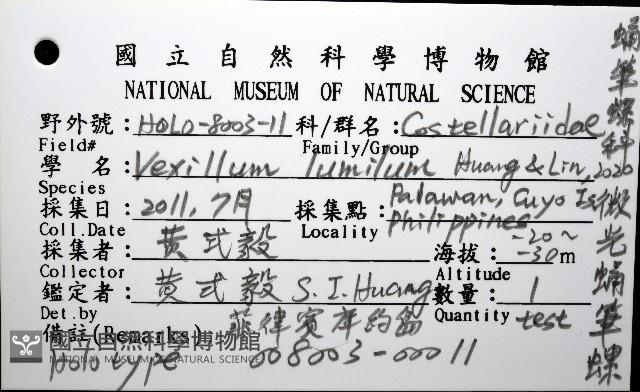 國立自然科學博物館
NATIONAL MUSEUM OF NATURAL SCIENCE
野外號：HOLO-8003-11 科/群名：Costellariidae
Field# Family/Group
學 名：Vexillum lumilum Huang & Lin, 2020
Species
採集日：2011, 7月 採集點：Palawan, Cuyo Is
Coll.Date Locality Philippines
採集者：黃式毅 海拔：-20~-30m
Collector Altitude
鑑定者：黃式毅 S.I.Huang 數量：1
Det.by Quantity test
備註(Remarks) 菲律賓
holotype 008003-00011
蛹筆螺科 微光蛹筆螺
國立自然科學博物館
NATIONAL MUSEUM OF NATURAL SCIENCE